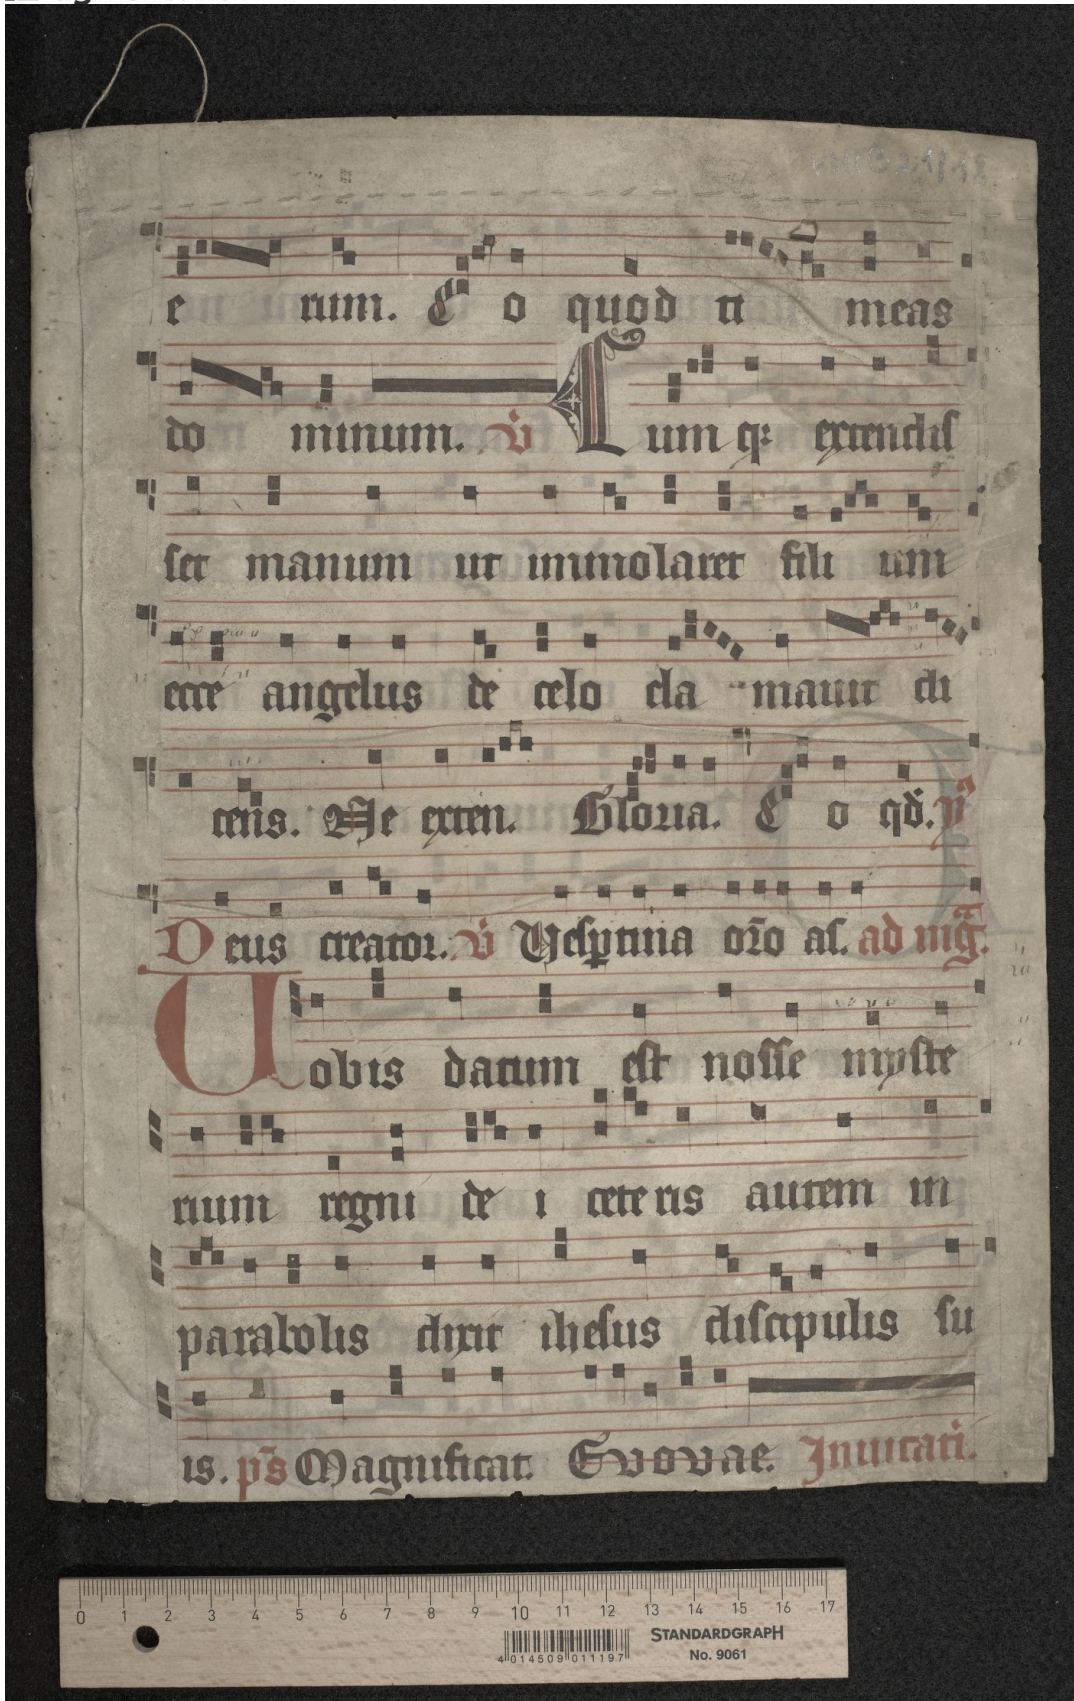 e rum. E o quod ti meas
do minum. v̄ Cumq; extendis
set manum ut immolaret fili um
ecce angelus de celo cla mauit di
cens. Ne exten. Gloria. E o qd̄. ym̄
Deus creator. v̄ Vesp̱tina or̄o as. ad mḡ.
Uobis datum est nosse myste
rium regni de i cete ris autem in
parabolis dixit ihesus discipulis su
is. ps̄ Magnificat. Evovae. Inuitati.
0 1 2 3 4 5 6 7 8 9 10 11 12 13 14 15 16 17
STANDARDGRAPH
No. 9061
4 014509 011197